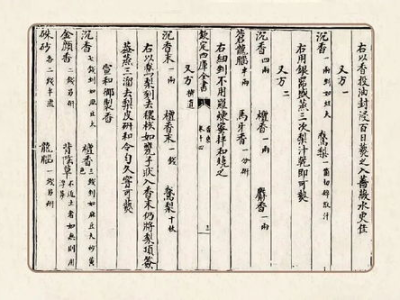 右以香投油封浸百日爇之入薔薇水更佳
又方一
沉香一兩剉如豆大　鵞梨一箇切碎取汁
右用銀器盛蒸三次梨汁乾即可爇
又方二
沉香四兩　麝香一兩
龍腦半兩　馬牙香一分研
右細剉不用羅煉蜜拌和燒之
欽定四庫全書　香乘　卷十四
又方補遺
沉香末一兩　檀香末一錢　鵞梨十枚
右以鵞梨刻去穰核如甕子狀入香末仍將梨頂簽
蓋蒸三溜去梨皮研和令勻久窨可爇
宣和御製香
沉香七錢剉如麻豆大　檀香三錢剉如麻豆大炒黄色
金顏香二錢另研　背陰草不近土者如無則用浮萍
硃砂各二錢半飛　龍腦一錢另研